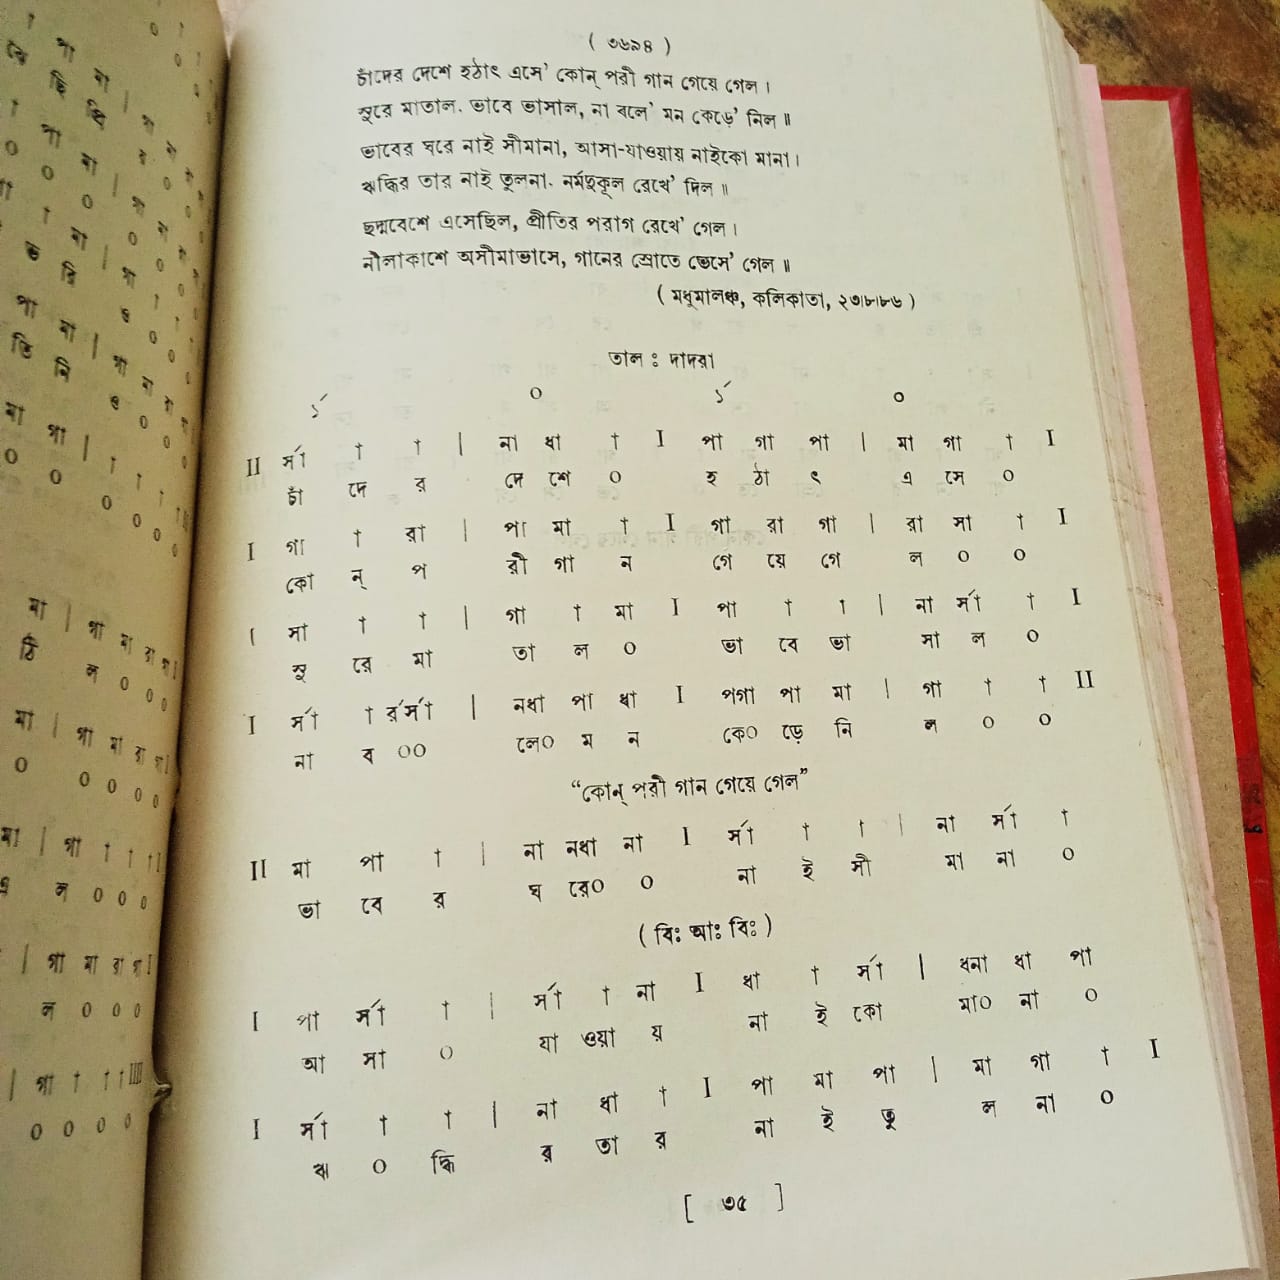 ( ৩৬৯৪ )
চাঁদের দেশে হঠাৎ এসে' কোন্ পরী গান গেয়ে গেল ।
সুরে মাতাল. ভাবে ভাসাল, না বলে' মন কেড়ে' নিল ॥
ভাবের ঘরে নাই সীমানা, আসা-যাওয়ায় নাইকো মানা ।
ঋদ্ধির তার নাই তুলনা. নর্মমুকুল রেখে' দিল ॥
ছদ্মবেশে এসেছিল, প্রীতির পরাগ রেখে' গেল ।
নীলাকাশে অসীমাভাসে, গানের স্রোতে ভেসে' গেল ॥
( মধুমালঞ্চ, কলিকাতা, ২৩।৮।৮৬ )
তাল : দাদরা
১´ ০ ১´ ০
II র্সা † † | না ধা † I পা গা পা | মা গা † I
চাঁ দে র দে শে ০ হ ঠা ৎ এ সে ০
I গা † রা | পা মা † I গা রা গা | রা সা † I
কো ন্ প রী গা ন গে য়ে গে ল ০ ০
I সা † † | গা † মা I পা † † | না র্সা † I
সু রে মা তা ল ০ ভা বে ভা সা ল ০
I র্সা † র্রর্সা | নধা পা ধা I পগা পা মা | গা † † II
না ব ০০ লে০ ম ন কে০ ড়ে নি ল ০ ০
“কোন্ পরী গান গেয়ে গেল”
II মা পা † | না নধা না I র্সা † † | না র্সা †
ভা বে র ঘ রে০ ০ না ই সী মা না ০
( বিঃ আঃ বিঃ )
I পা র্সা † | র্সা † না I ধা † র্সা | ধনা ধা পা
আ সা ০ যা ওয়া য় না ই কো মা০ না ০
I র্সা † † | না ধা † I পা মা পা | মা গা † I
ঋ ০ দ্ধি র তা র না ই তু ল না ০
[ ৩৫ ]